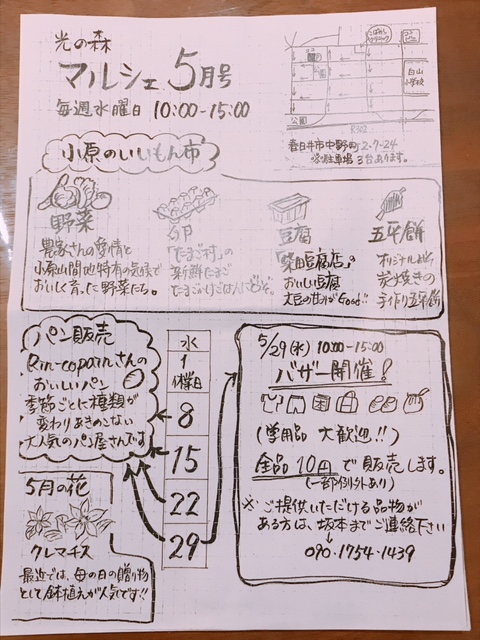 光の森
マルシェ 5月号
毎週水曜日 10:00-15:00
コンビニ
白山
小学校
公園
R302
春日井市中野町2-7-24
駐車場 3台あります。
小原のいいもん市
野菜
農家さんの愛情と
小原山間地特有の気候で
おいしく育った野菜たち。
卵
「たまご村」の
新鮮たまご
たまごかけごはんにどうぞ。
豆腐
「柴田豆腐店」の
おいしい豆腐
大豆の甘みがGood!!
五平餅
炭焼きの
手作り五平餅
パン販売
Rin-copanさんの
おいしいパン
季節ごとに種類が
変わりあきのこない
大人気のパン屋さんです
水
1
休業日
8
15
22
29
5/29(水) 10:00-15:00
バザー開催!
(学用品 大歓迎!!)
全品10円で販売します。
(一部例外あり)
※ご提供いただける品物が
ある方は、坂本までご連絡下さい
090-1754-1439
5月の花
クレマチス
最近では、母の日の贈り物
として鉢植えが人気です!!